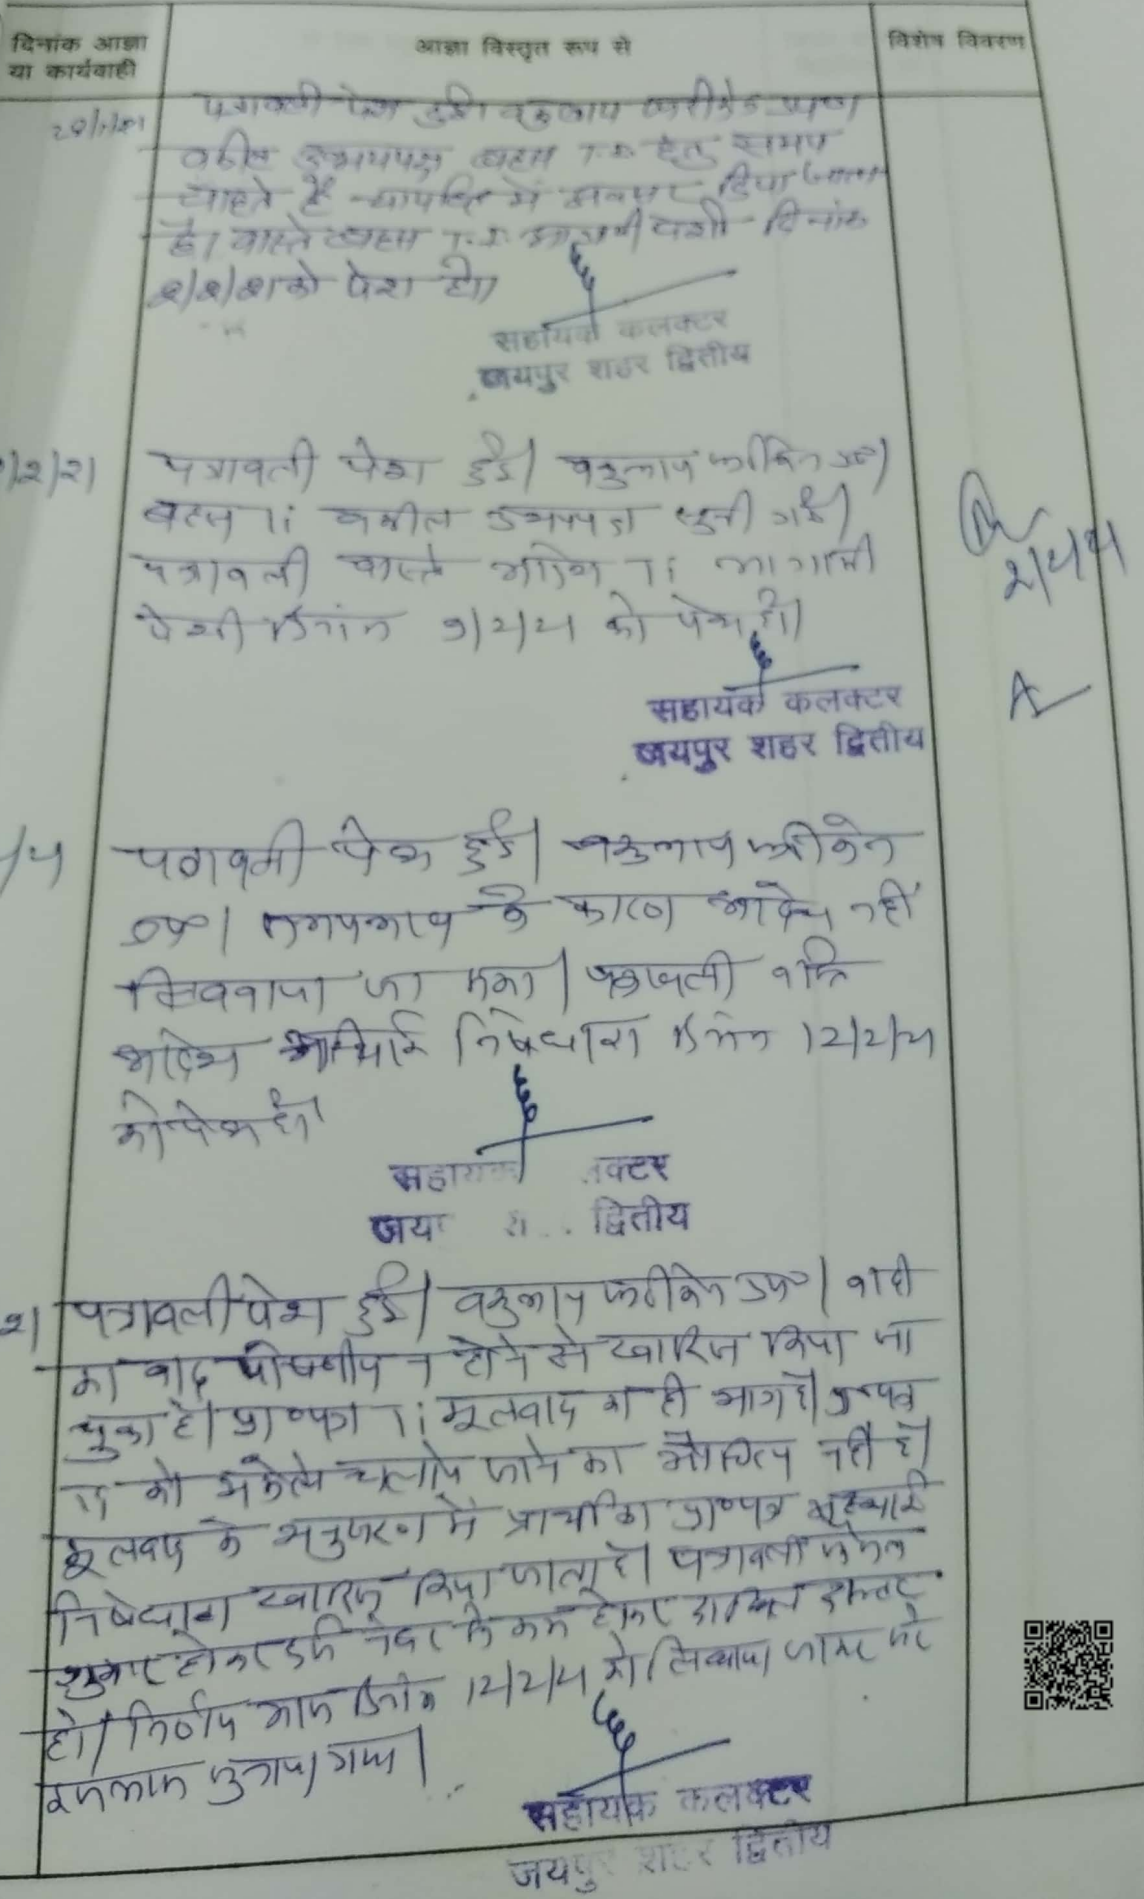 दिनांक आज्ञा
या कार्यवाही
आज्ञा विस्तृत रूप से
विशेष विवरण
पत्रावली पेश हुई। वकुलाय फरीकेन उप०।
वकील उभयपक्ष बहस T.I. हेतु समय
चाहते हैं न्यायहित में अवसर दिया जाता
है। वास्ते बहस T.I. आगामी पेशी दिनांक
को पेश हो।
सहायक कलक्टर
जयपुर शहर द्वितीय
पत्रावली पेश हुई। वकुलाय फरीकेन उप०।
बहस T.I. वकील उभयपक्ष सुनी गई।
पत्रावली वास्ते आदेश T.I. आगामी
पेशी दिनांक 9/2/21 को पेश हो।
सहायक कलक्टर
जयपुर शहर द्वितीय
पत्रावली पेश हुई। वकुलाय फरीकेन
उप०। के कारण आदेश नहीं
लिखवाया जा सका। पत्रावली वास्ते
आदेश अस्थाई निषेधाज्ञा दिनांक 12/2/21
को पेश हो।
सहायक क्टर
जय द्वितीय
पत्रावली पेश हुई। वकुलाय फरीकेन उप०। वादी
का वाद पोषणीय न होने से खारिज किया जा
चुका है। प्रा०पत्र T.I. मूलवाद का ही भाग है। प्रा०पत्र
T.I. को अकेले चलाये जाने का औचित्य नहीं है।
मूलवाद के अनुसरण में प्रार्थीगण प्रा०पत्र अस्थाई
निषेधाज्ञा खारिज किया जाता है। पत्रावली फैसल
शुमार होकर दर्ज नंबर से कम होकर दाखिल दफ्तर
हो। निर्णय आज दिनांक 12/2/21 को लिखवाया जाकर सरे
इजलास सुनाया गया।
सहायक कलक्टर
जयपुर शहर द्वितीय